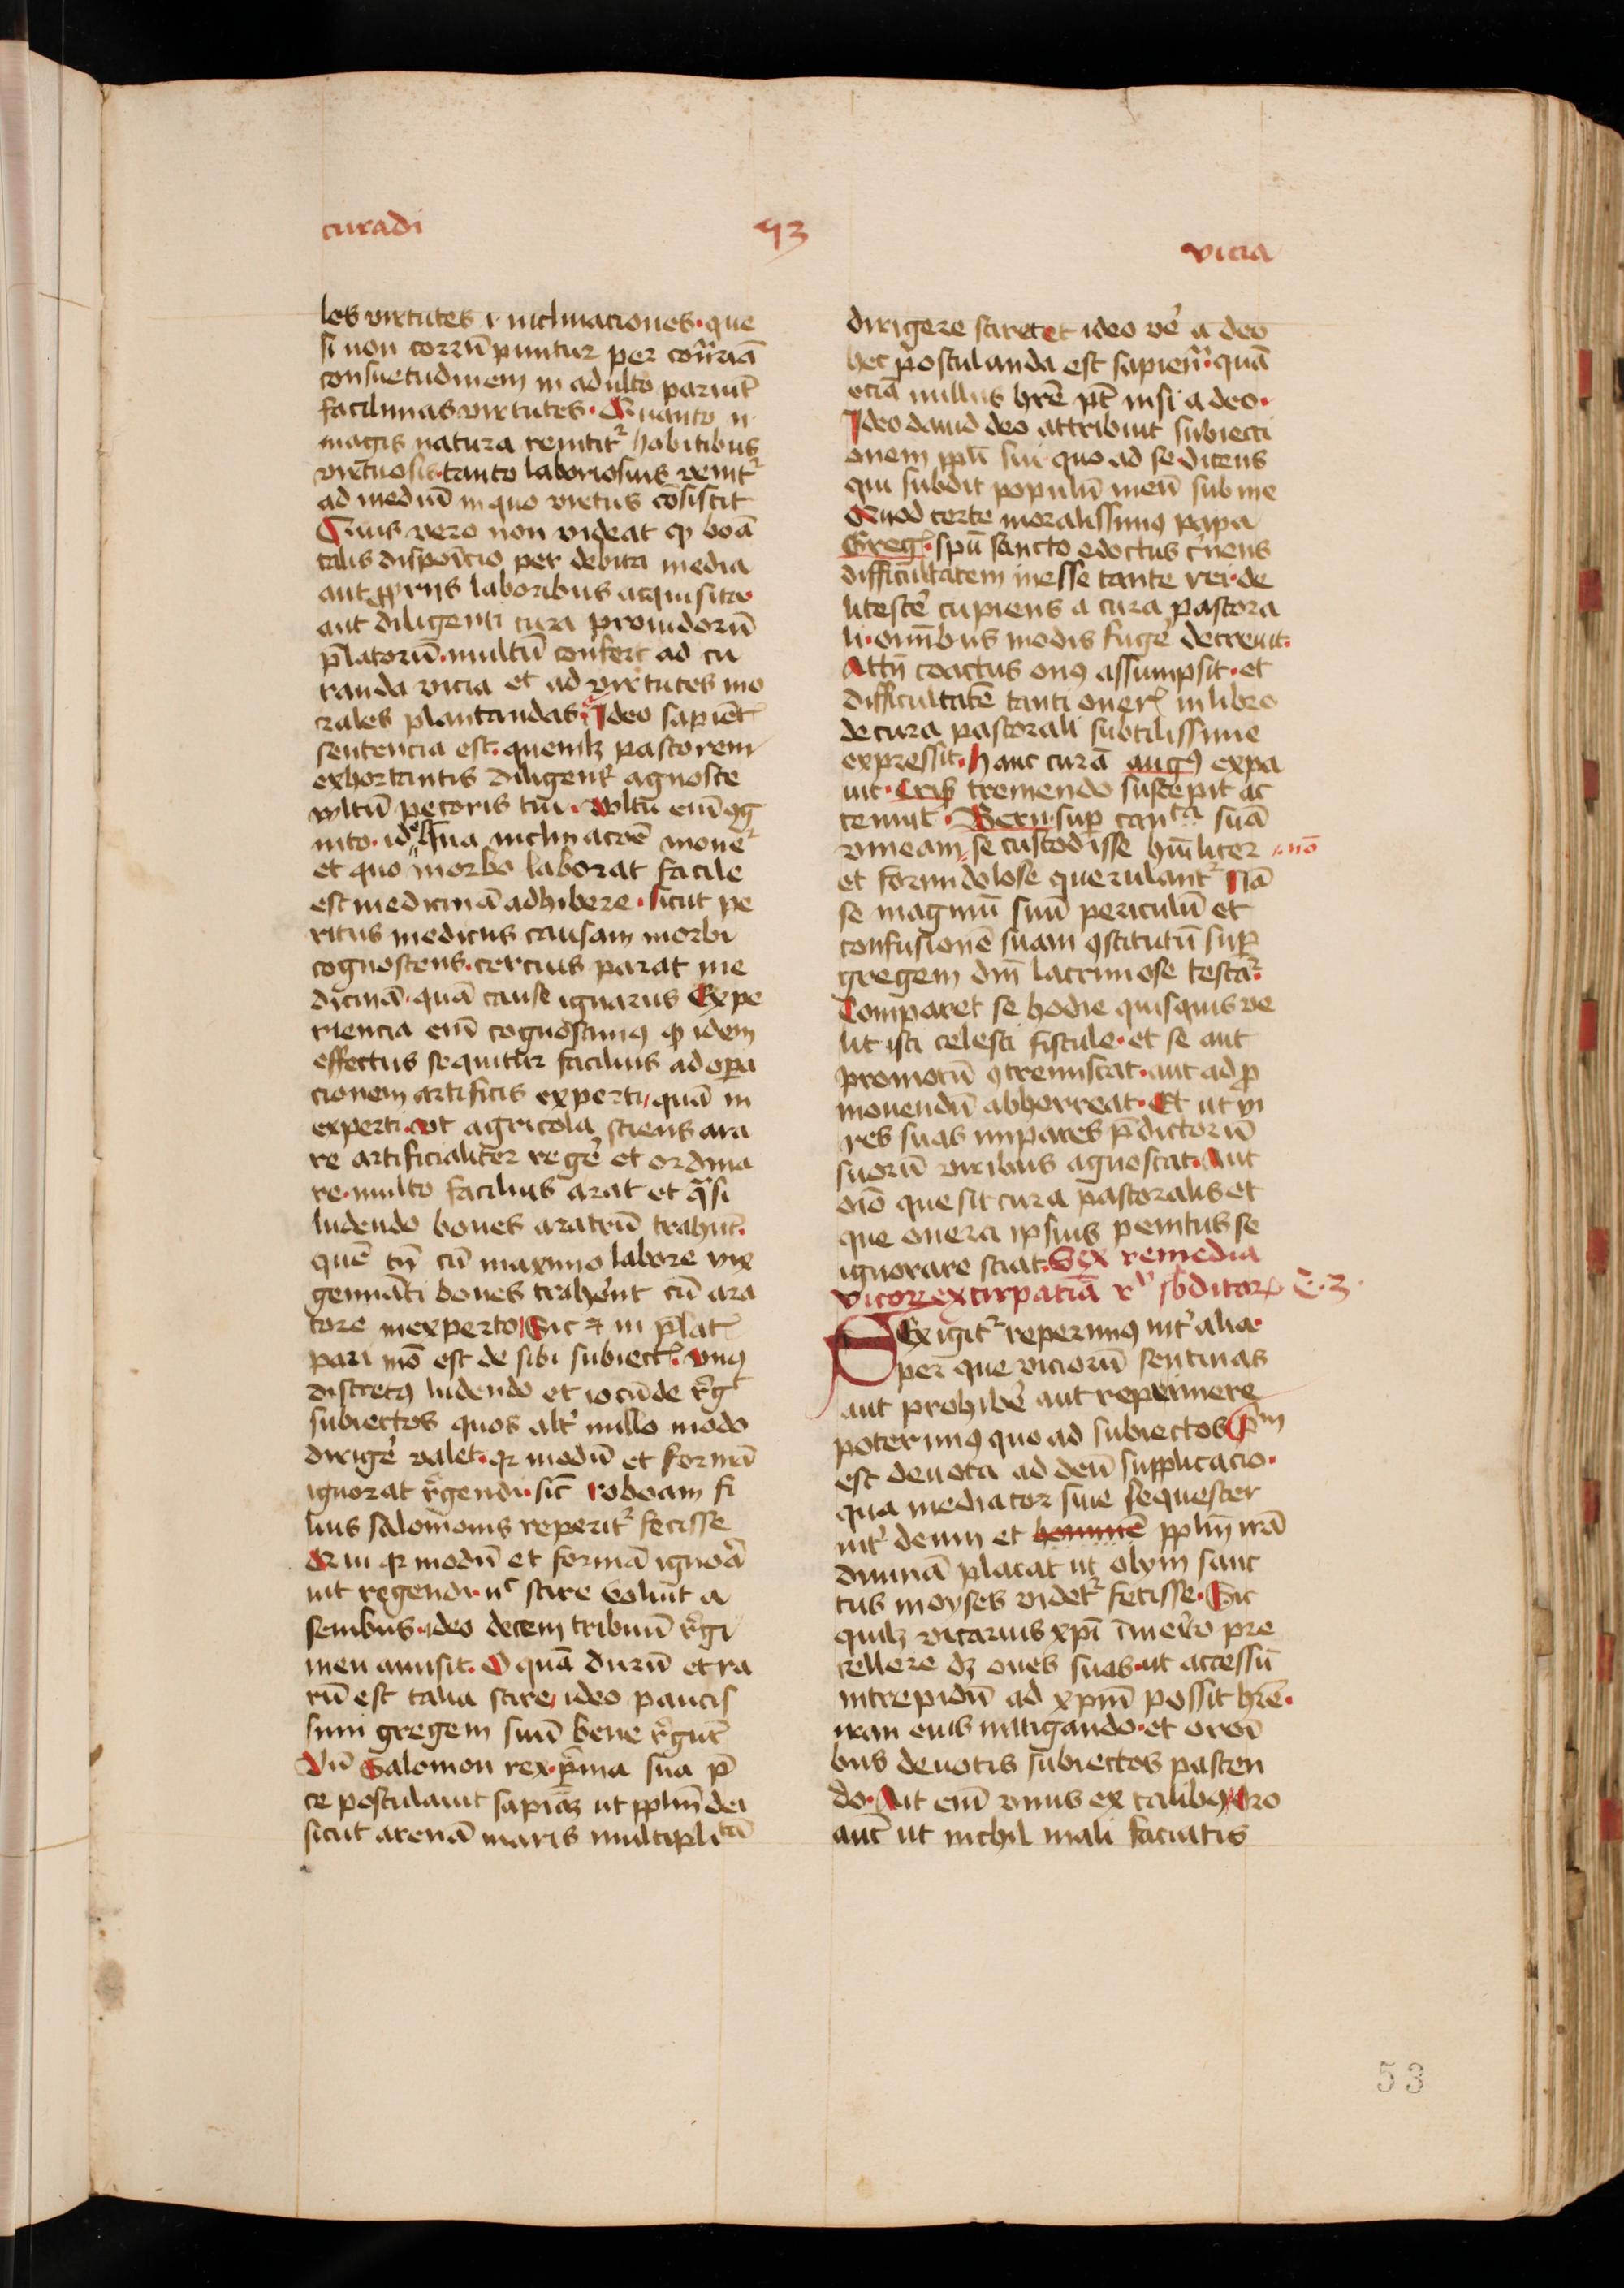 curadi
53
vicia
les virtutes i inclinaciones · que
si non corrūpuntur per cont̄riā
consuetudinem in adulto pariūt
facilimas virtutes · Quanto n
magis natura renitit᷑ habitibus
virtuosis · tanto laboriosius venit᷑
ad mediū in quo virtus cōsistit
Quis vero non videat ꝙ boā
talis disposicio per debita media
aut ꝓprijs laboribus acquisita
aut diligenti cura prouidorū
p̄latorū · multū confert ad cu
randa vicia et ad virtutes mo
rales plantandas · Ideo sapiēt
sentencia est · quemlꝫ pastorem
exhortantis diligent᷑ agnosce
vultū pecoris tui · Vultu em̄ cog
nito · id est qua inclinacōe mouet᷑
et quo morbo laborat facile
est medicinā adhibere · sicut pe
ritus medicus causam morbi
cognoscens · cercius parat me
dicinā · quā cause ignarus Expe
riencia em̄ cognoscimꝰ ꝙ idem
effectus sequitur facilius ad oꝑa
cionem artificis experti / quā in
experti · ut agricola sciens ara
re artificialiter reger̄ et ordina
re · multo facilius arat et q̄si
ludendo boues aratrū trahūt ·
quē tn̄ cū maximo labore vix
gemiāti boues traherēt cū ara
tore inexperto Sic ⁊ in p̄lat
pari mō est de sibi subiect · vnꝰ
discretꝰ ludendo et iocūde r̄gt
subiectos quos alt᷑ nullo modo
diriger̄ valet · qr modū et formā
ignorat r̄gendi · sic̄ roboam fi
lius salomonis reperit᷑ fecisse
Qui qr modū et formā ignoā
uit regendi · nc scire voluit a
senibus · ideo decem tribuū r̄gi
men amisit · O quā durū et ra
rū est talia scire / ideo paucis
simi gregem suū bene r̄gūt
Vn̄ Salomon rex · pr̄ma sua p̄
ce postulauit sapiaꝫ ut pplm̄ dei
sicut arenā maris multiplitā
dirigere sciret et ideo ver̄ a deo
hec postulanda est sapient̄ · quā
eciā nullus hr̄e pt̄ nisi a deo ·
Ideo dauid deo attribuit subiecti
onem ppli sui quo ad se dicens
qui subdit populū meū sub me
Quod certe moralissimꝰ papa
Greg · spū sancto edoctus cer̄nens
difficultatem inesse tante rei · de
litescer̄ cupiens a cura pastora
li · om̄ibus modis fuger̄ decreuit ·
Attn̄ coactus onꝰ assumpsit · et
difficultatē tanti oner in libro
de cura pastorali subtilissime
expressit · Hanc curā augꝰ expa
uit · Cris tremendo suscepit ac
tenuit · Bern · sup̄ cantᶜᵃ suā
vineam / se custodisse hūiliter / nō
et formidolose querulant᷑ Nā
se magnū suū periculū et
confusionē suam ꝯstitutū sup̄
gregem dn̄i lacrimose testat᷑ ·
Comparet se hodie quisquis ve
lit isti celesti fistule · et se aut
promotū ꝯtremiscat · aut ad ꝓ
mouendū abhorreat · Et ut vi
res suas impares p̄dictorū
suorū viribus agnoscat · Aut
oīo que sit cura pastoralis et
que onera ipsius penitus se
ignorare sciat · Sex remedia
vicioꝝ extirpatiā rᵛ sb̄ditoꝝ C · 3 ·
SEx igit᷑ reperimꝰ int᷑ alia ·
per que viciorū sentinas
aut prohiber̄ aut reprimere
poterimꝰ quo ad subiectos Pᵐ
est deuota ad deū supplicacio ·
qua mediator siue sequester
int᷑ deum et hominē pplm̄ irā
diuinā placat ut olym sanc
tus moyses videt᷑ fecisse · Sic
quilꝫ vicarius xp̄i īmer̄o pre
cellere dꝫ oues suas · ut accessū
intrepidū ad xpm̄ possit hr̄e ·
iram eius mitigando · et oroī
bus deuotis subiectos pascen
do · Ait em̄ vnus ex talibꝰ Oro
aut̄ ut nichil mali faciatis
53